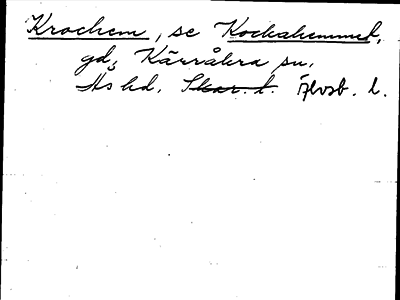 Krochem, se Kockahemmet,
gd, Kärråkra sn,
Ås hd. Skar. l. Älvsb. l.